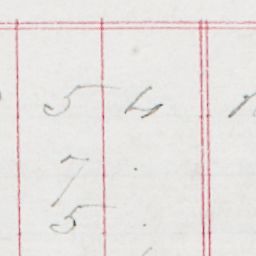 5 4
7 .
5 .